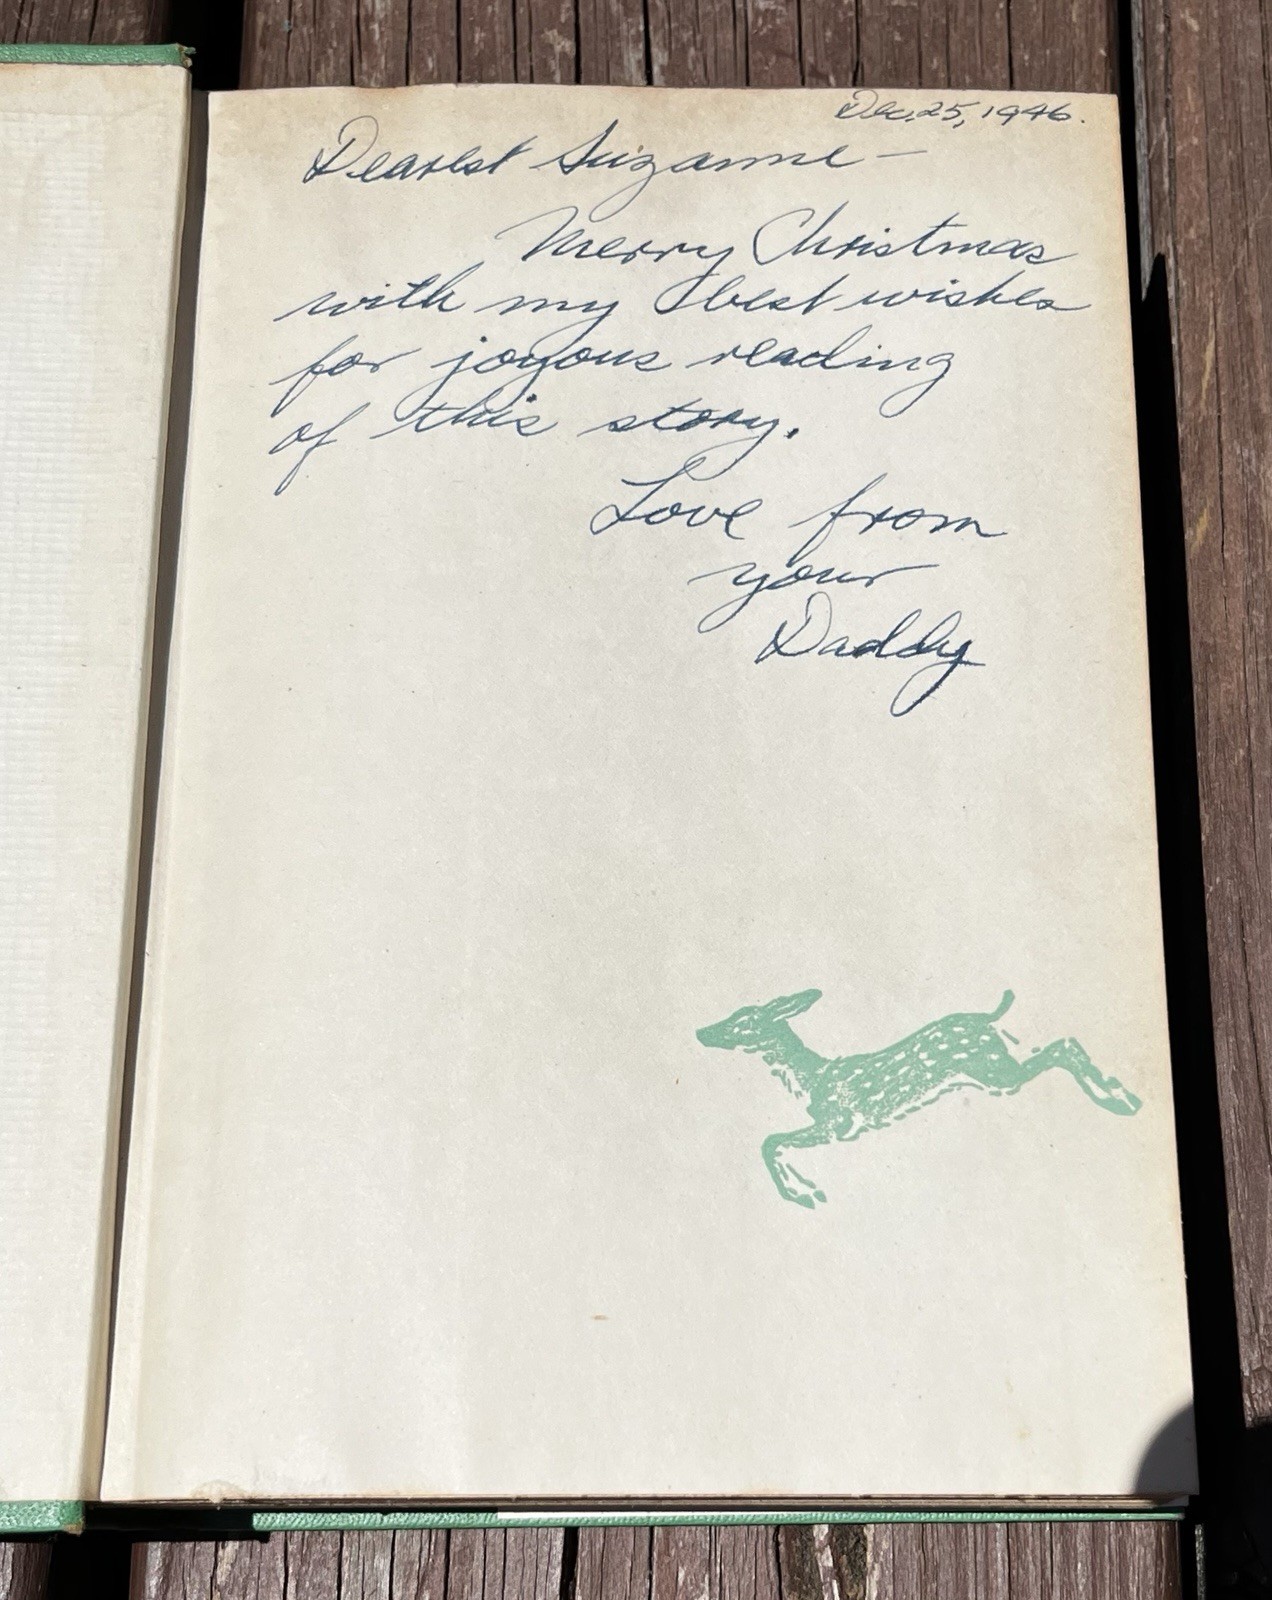 Dec. 25, 1946.
Dearest Suzanne –
Merry Christmas
with my best wishes
for joyous reading
of this story.
Love from
your
Daddy